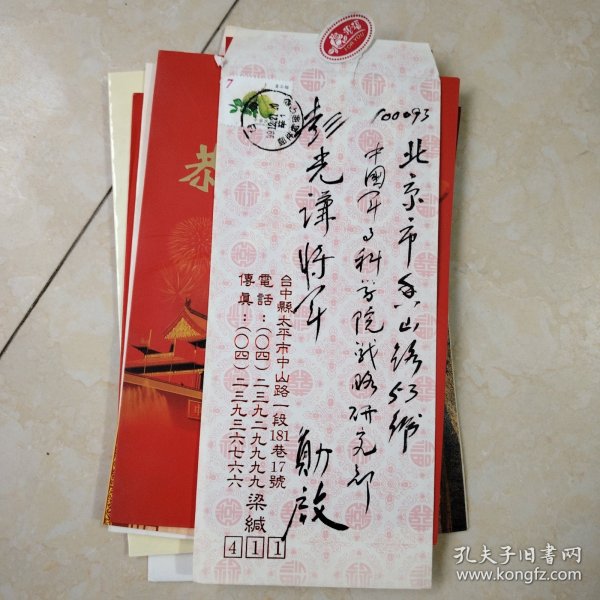 100093
北京市香山路53號
中國军事科学院战略研究部
彭光谦将军 勛啟
台中縣太平市中山路一段181巷17號
電話：(〇四)二三九二九九九九梁緘
傳真：(〇四)二三九三六七六六
411
7
99.12.27.20
恭
FOR YOU
孔夫子旧书网
www.kongfz.com